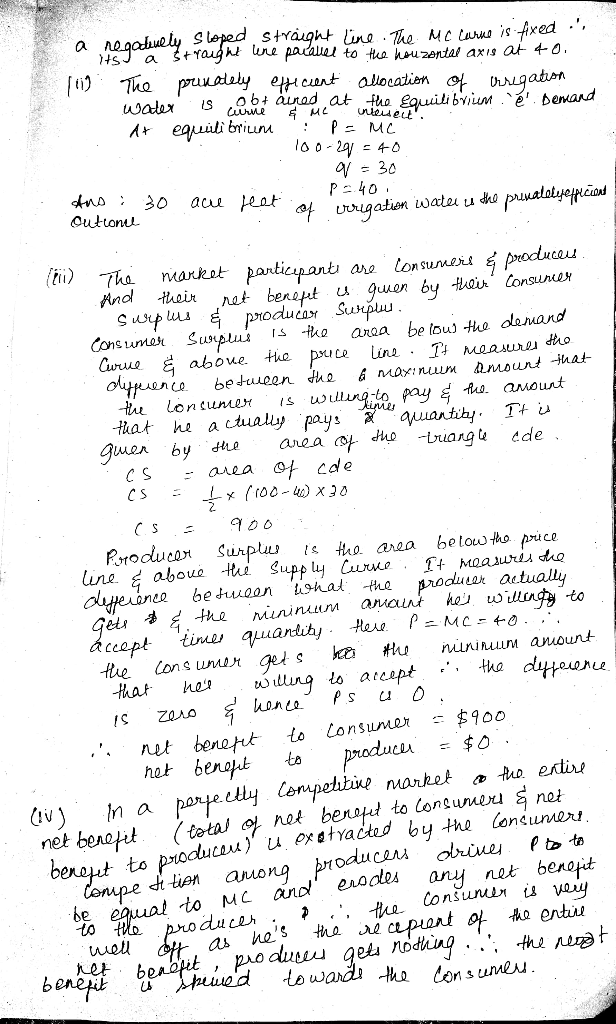 a negatively sloped straight line. The MC curve is fixed ∴
its a straight line parallel to the horizontal axis at 40.
(ii) The privately efficient allocation of irrigation
water is obtained at the Equilibrium 'e'. Demand
curve & MC intersect.
At equilibrium : P = MC
100 - 2q = 40
q = 30
P = 40.
Ans : 30 acre feet of irrigation water is the privatelyefficient
outcome
(iii) The market participants are Consumers & producers
And their net benefit is given by their Consumer
Surplus & producer Surplus.
Consumer Surplus is the area below the demand
Curve & above the price line. It measures the
difference between the maximum amount that
the Consumer is willing to pay & the amount
that he actually pays times quantity. It is
given by the area of the triangle cde.
CS = area of cde
CS = 1/2 x (100-40) x 30
CS = 900
Producer Surplus is the area below the price
line & above the Supply Curve. It measures the
difference between what the producer actually
gets & the minimum amount he's willing to
accept times quantity. Here P = MC = 40. ∴
the Consumer gets the minimum amount
that he's willing to accept ∴ the difference
is zero & hence PS is 0.
∴ net benefit to Consumer = $900
net benefit to producer = $0.
(iv) In a perfectly Competitive market the entire
net benefit (total of net benefit to Consumers & net
benefit to producers) is extracted by the Consumers.
Competition among producers drives P to
be equal to MC and erodes any net benefit
to the producer. ∴ the consumer is very
well off as he's the recepient of the entire
net benefit, producers gets nothing. ∴ the net
benefit is skewed towards the Consumers.